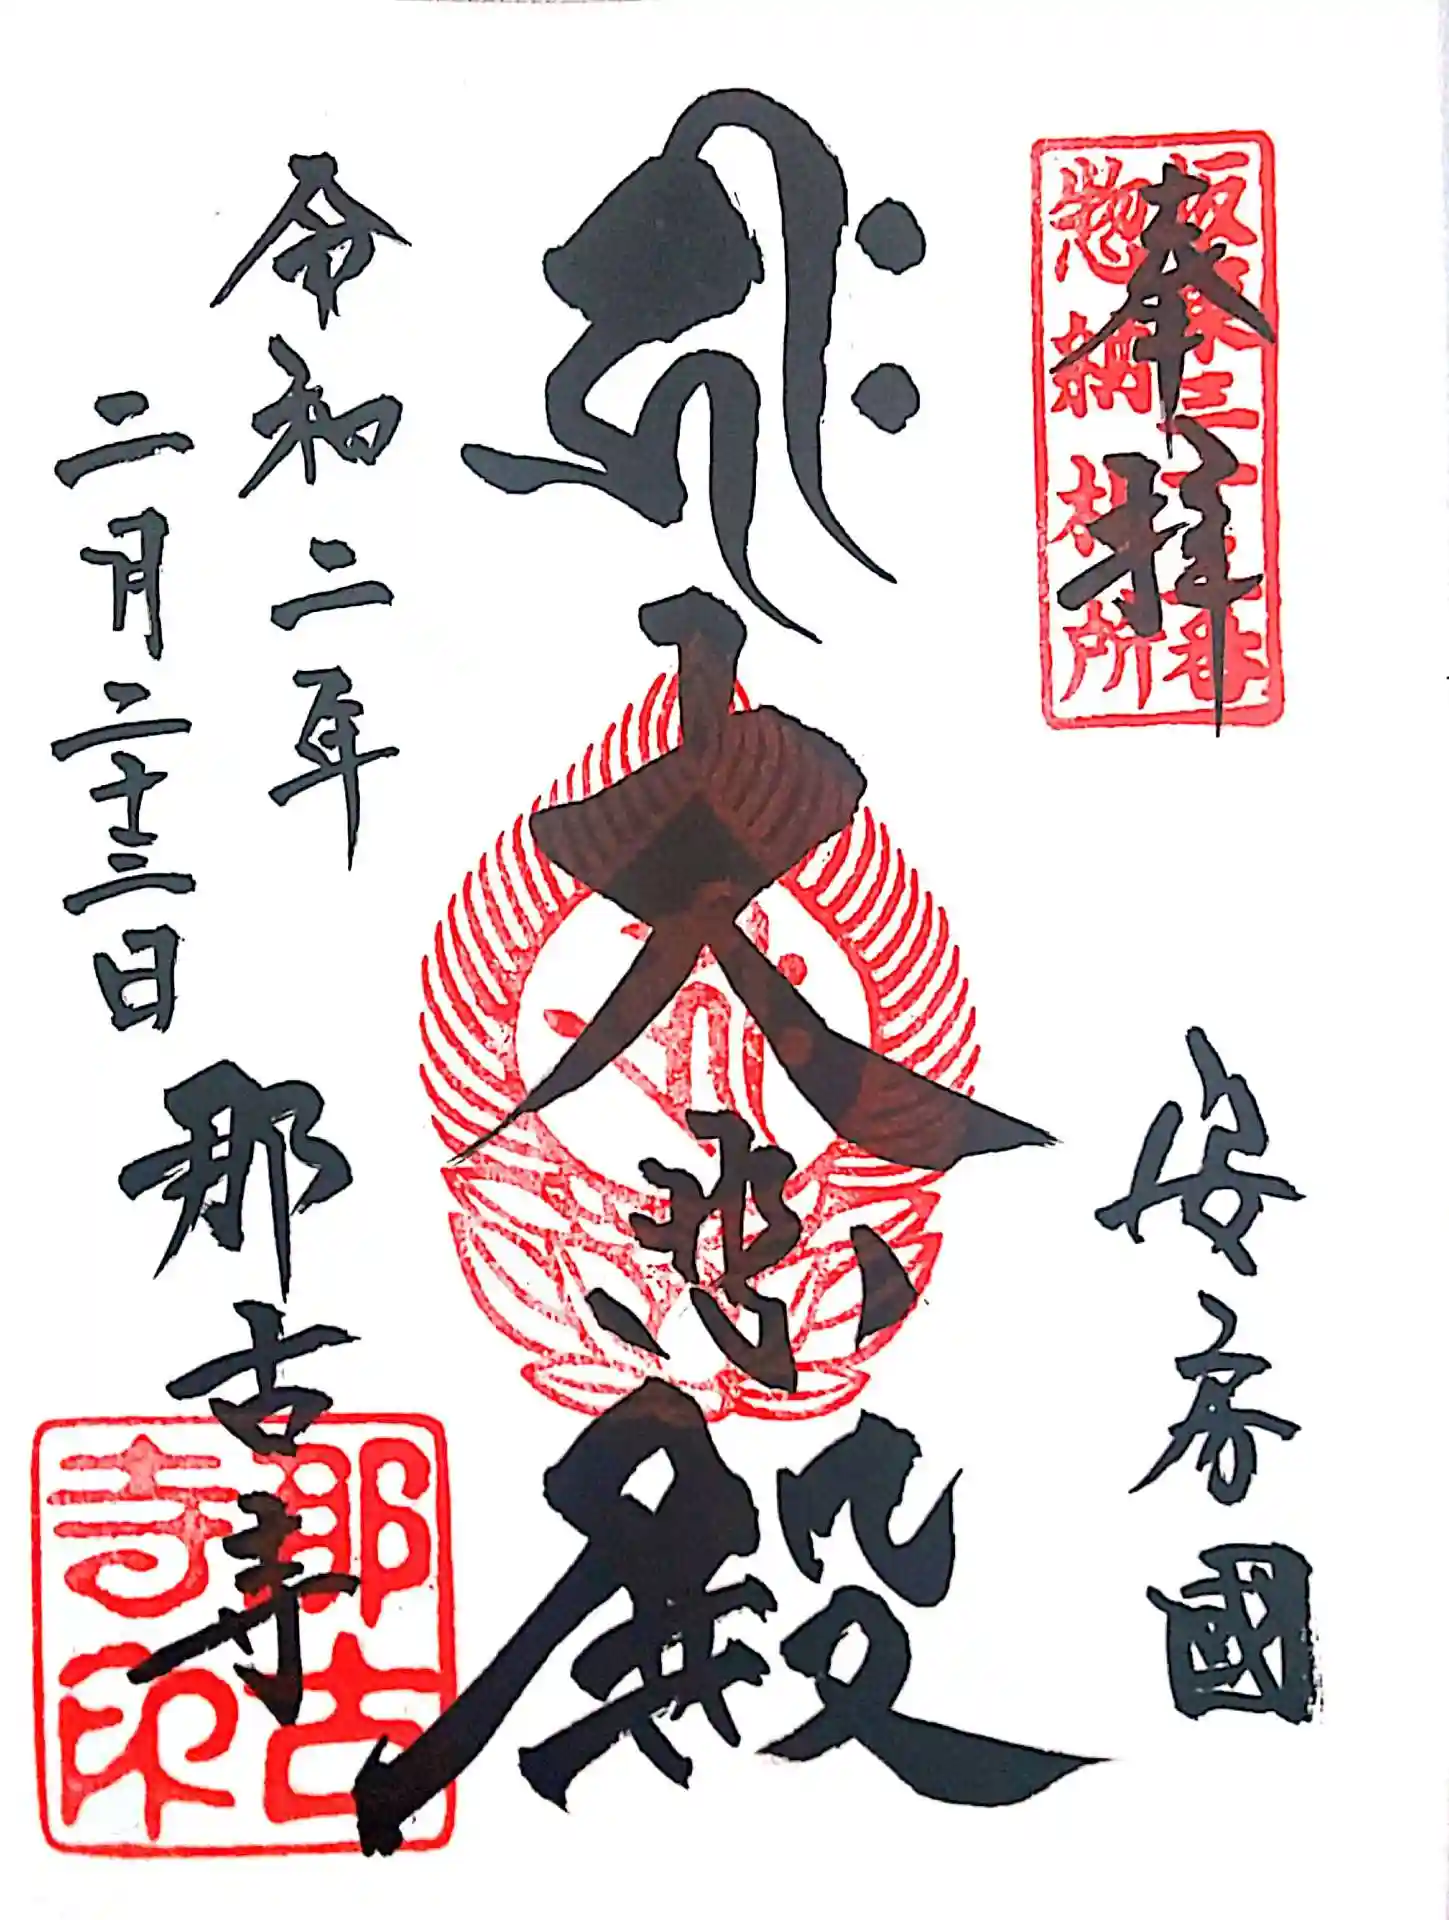 坂東三十三番
惣納札所
奉拝
安房國
𑖮𑖿𑖨𑖱𑖾
大悲殿
令和二年
二月二十三日
那古寺
那古寺印